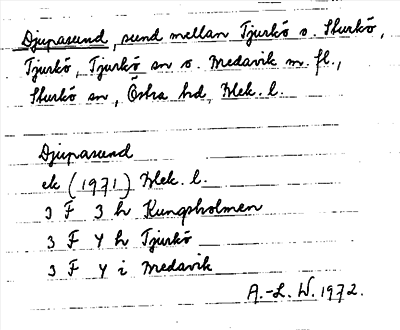 Djupasund, sund mellan Tjurkö o. Sturkö,
Tjurkö, Tjurkö sn o. Medavik m. fl.,
Sturkö sn, Östra hd, Blek. l.
Djupasund
ek (1971) Blek. l.
3 F 3 h Kungsholmen
3 F 4 h Tjurkö
3 F 4 i Medavik
A.-L. W. 1972.